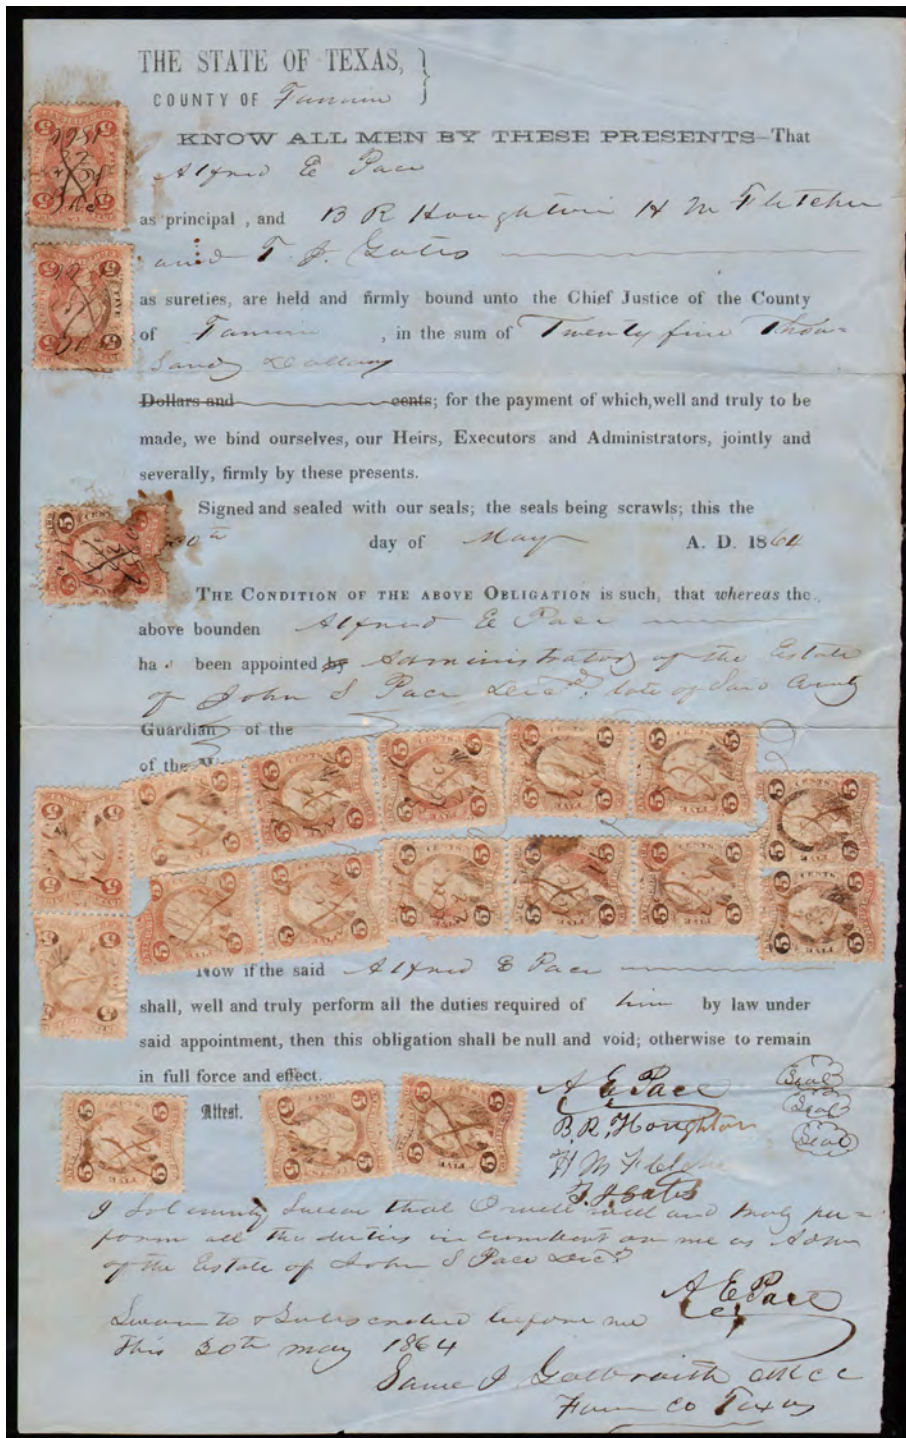 THE STATE OF TEXAS, }
COUNTY OF Fannin
KNOW ALL MEN BY THESE PRESENTS—That
Alfred E Pace
as principal , and B R Houghton H M Fletcher
and T. J. Gates
as sureties, are held and firmly bound unto the Chief Justice of the County
of Fannin , in the sum of Twenty five Thou=
sand Dollars
Dollars and cents; for the payment of which, well and truly to be
made, we bind ourselves, our Heirs, Executors and Administrators, jointly and
severally, firmly by these presents.
Signed and sealed with our seals; the seals being scrawls; this the
30th day of May A. D. 1864
THE CONDITION OF THE ABOVE OBLIGATION is such, that whereas the
above bounden Alfred E Pace
has been appointed by Administrator of the Estate
of John S Pace Decd. late of Said County
Guardian of the
of the
Now if the said Alfred E Pace
shall, well and truly perform all the duties required of him by law under
said appointment, then this obligation shall be null and void; otherwise to remain
in full force and effect.
Attest. A E Pace Seal
B. R. Houghton Seal
H M Fletcher Seal
T. J. Gates
I Solemnly Swear that I will well and truly per=
form all the duties incumbent on me as Admr
of the Estate of John S Pace Decd
A E Pace
Sworn to & Subscribed before me
this 30th may 1864
J Galbraith
Fann Co Texas